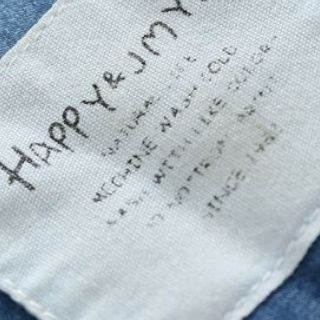 HAPPY & JMY
NATURAL LIFE
MECHINE WASH COLD
WASH WITH LIKE COLOR
DO NOT
SINCE